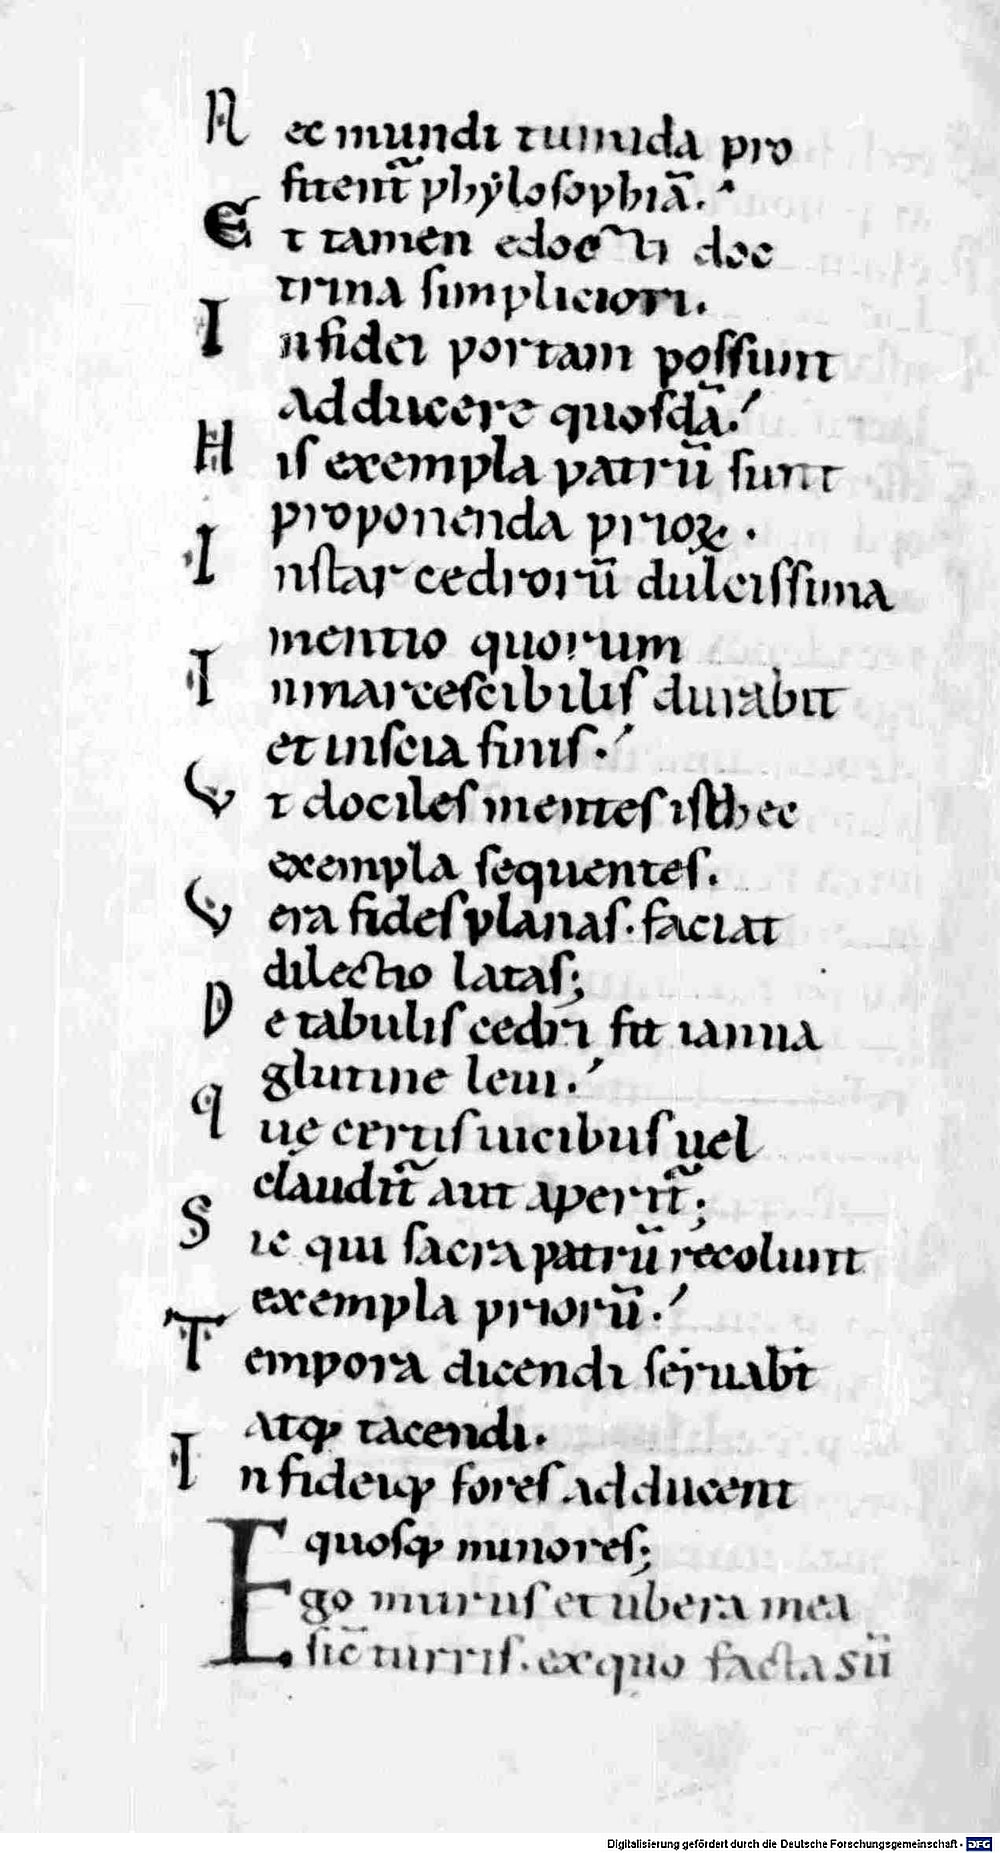 Nec mundi tumida pro
fitent᷑ phẏlosophiā.
Et tamen edocti doc
trina simpliciori.
In fidei portam possunt
adducere quosdā.
His exempla patrū sunt
proponenda prioꝝ.
Instar cedrorū dulcissima
mentio quorum
Inmarcescibilis durabit
et inscia finis.
Vt dociles mentes isthec
exempla sequentes.
Vera fides planas. faciat
dilectio latas;
De tabulis cedri fit ianua
glutine leui.
Quę certis uicibus uel
claudit᷑ aut aperit᷑;
Sic qui sacra patrū recolunt
exempla priorū.
Tempora dicendi seruabit
atqꝫ tacendi.
In fideiqꝫ fores adducent
quosqꝫ minores;
Ego murus et ubera mea
sic̄ turris. ex quo facta sū
Digitalisierung gefördert durch die Deutsche Forschungsgemeinschaft - DFG